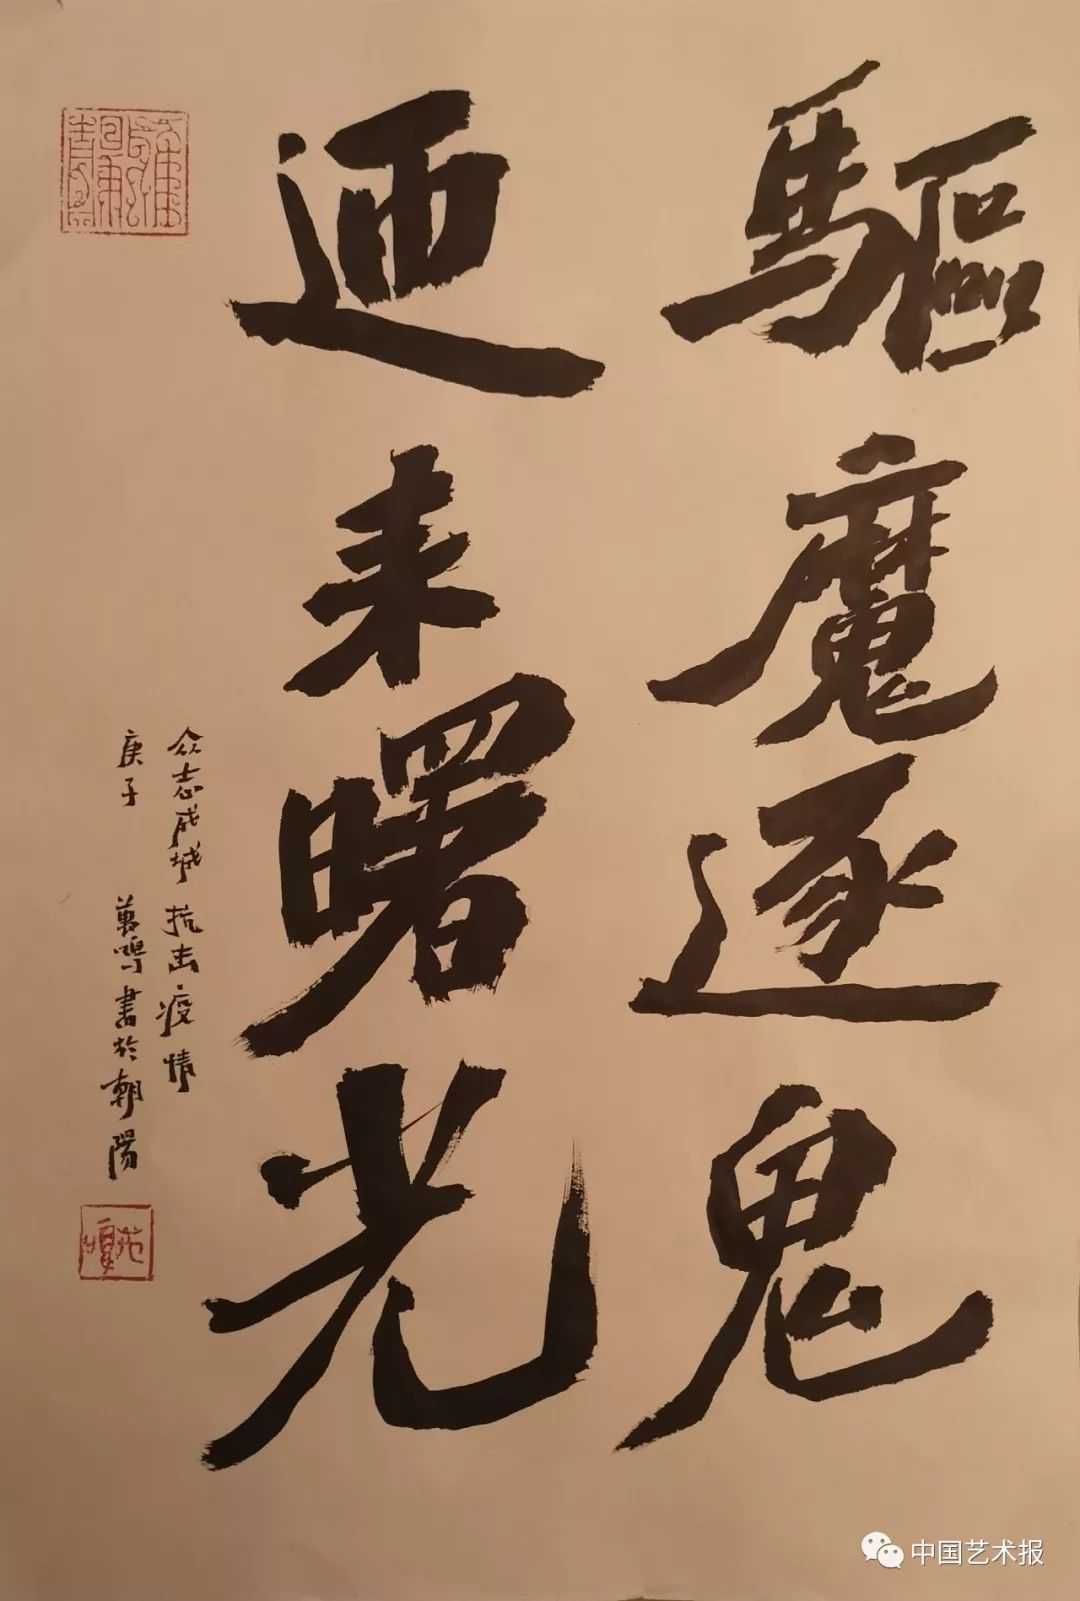 驅魔逐鬼
迎来曙光
众志成城 抗击疫情
庚子 萬鳴書於朝陽
中国艺术报